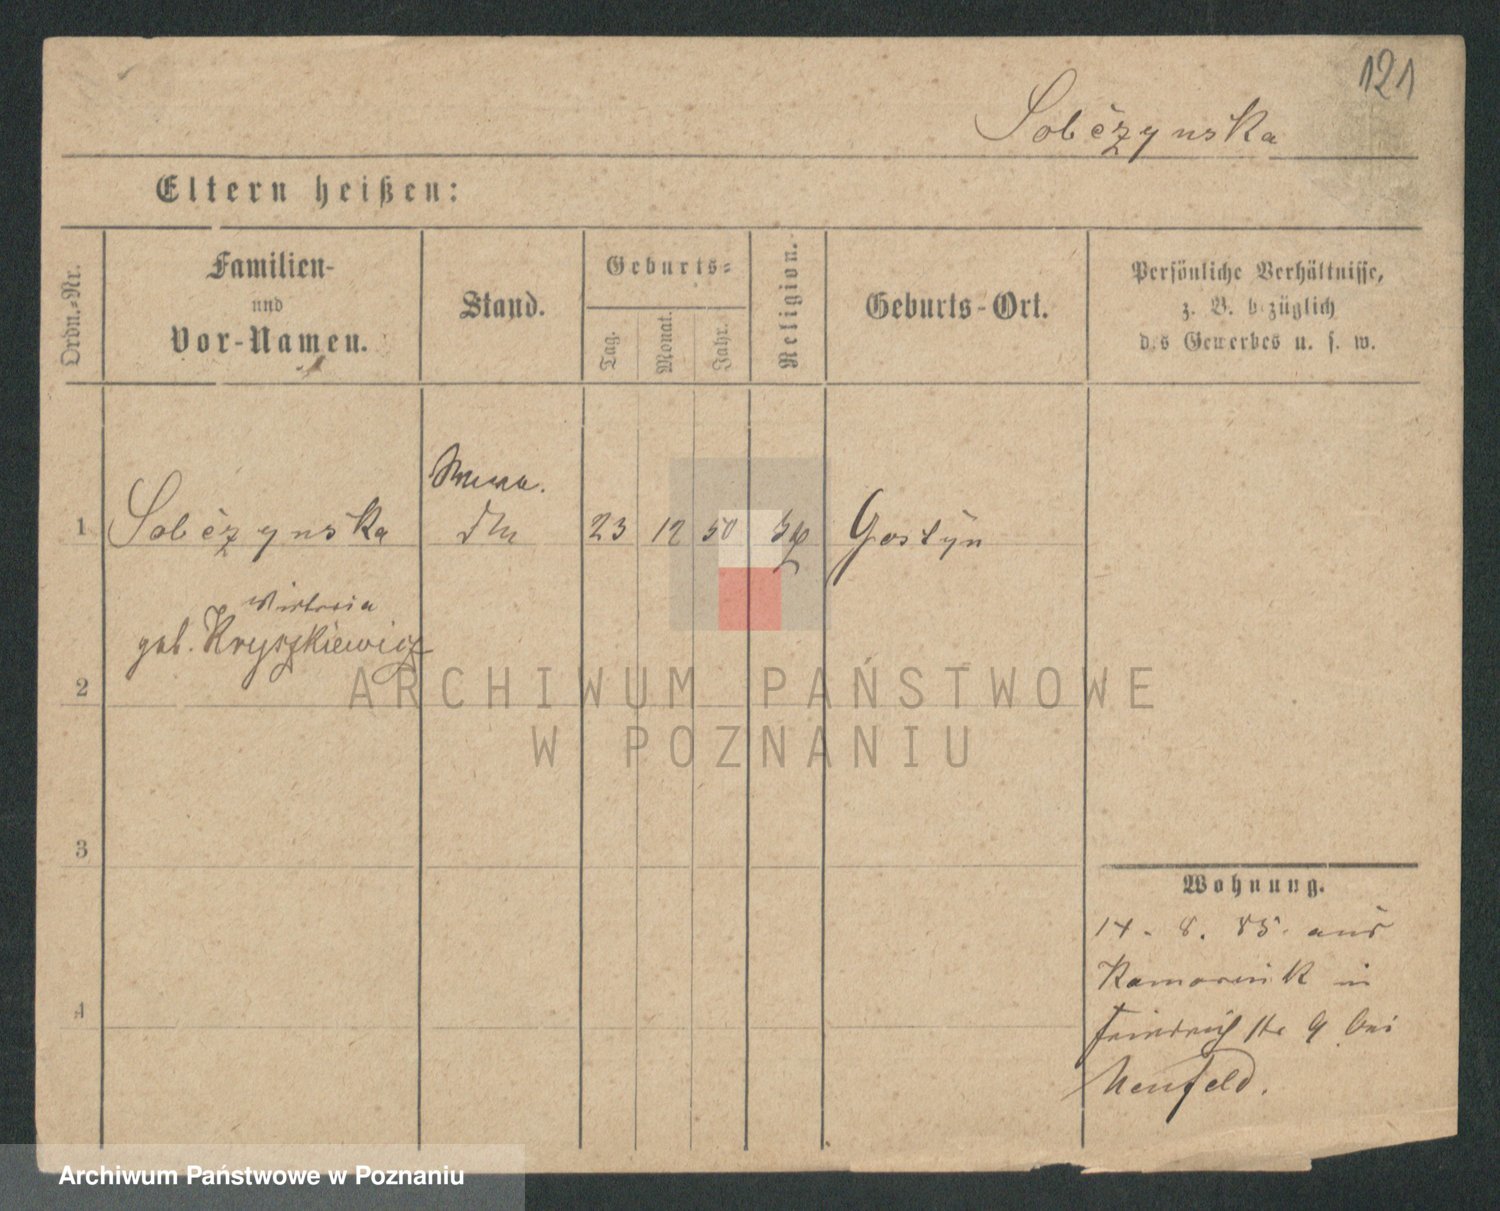 121
Sobczynska
Eltern heißen:
Ordn.-Nr.
Familien-
und
Vor-Namen.
Stand.
Geburts-
Tag.
Monat.
Jahr.
Religion.
Geburts-Ort.
Persönliche Verhältnisse,
z. B. bezüglich
des Gewerbes u. s. w.
1 Sobczynska 23 12 50 Gostyn
Wiktoria
geb. Kryszkiewicz
2
3
4
Wohnung.
14. 8. 85. aus
in
Friedrichstr 9 bei
Neufeld.
ARCHIWUM PAŃSTWOWE
W POZNANIU
Archiwum Państwowe w Poznaniu